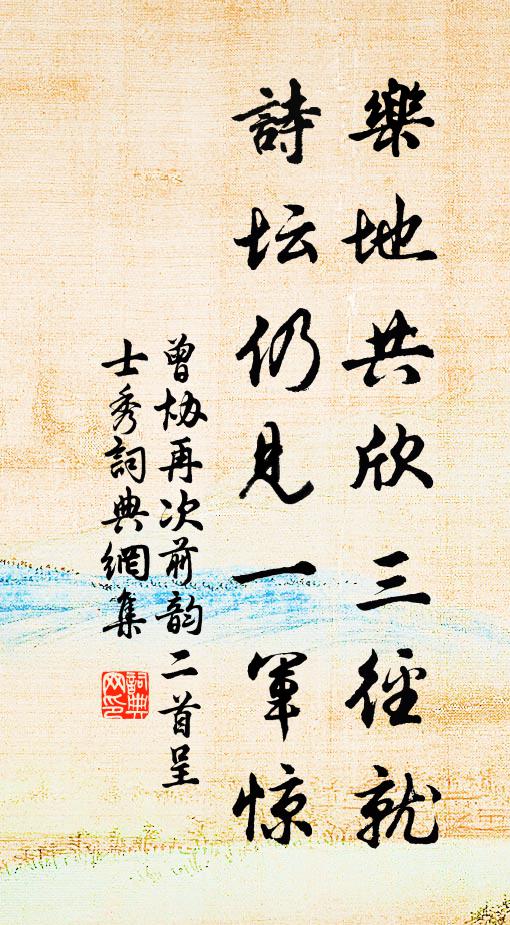 樂地共欣三徑就
詩坛仍見一軍惊
曾协再次前韵二首呈
士秀詞典網集
詞典
网印